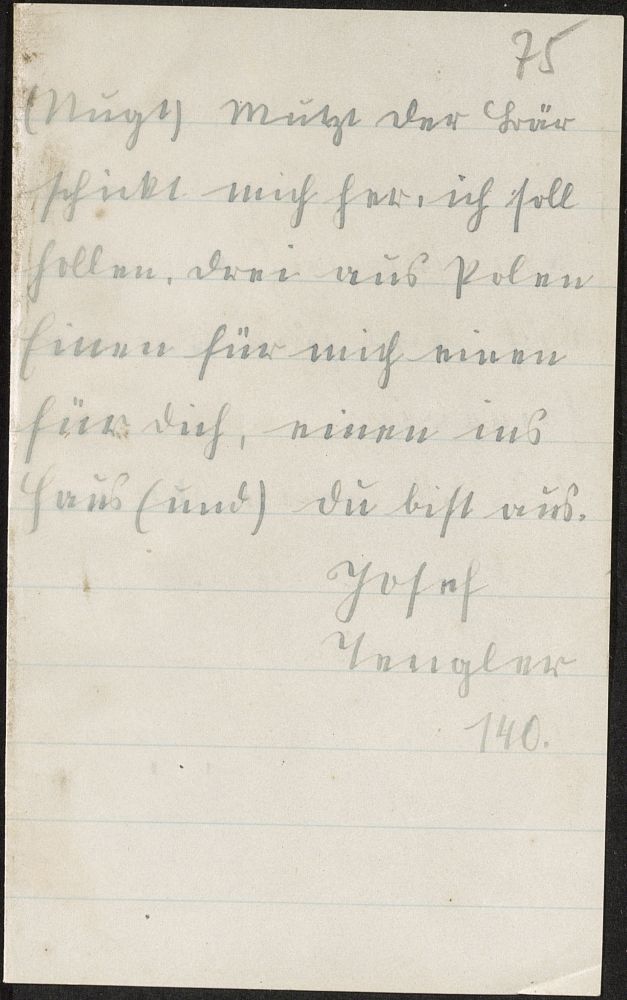 75
(Nugt) Mutzt der Bär
schickt mich her, ich soll
hollen, drei aus Polen
Einen für mich einen
für dich, einen ins
Haus (und) du bist aus.
Josef
Tengler
140.